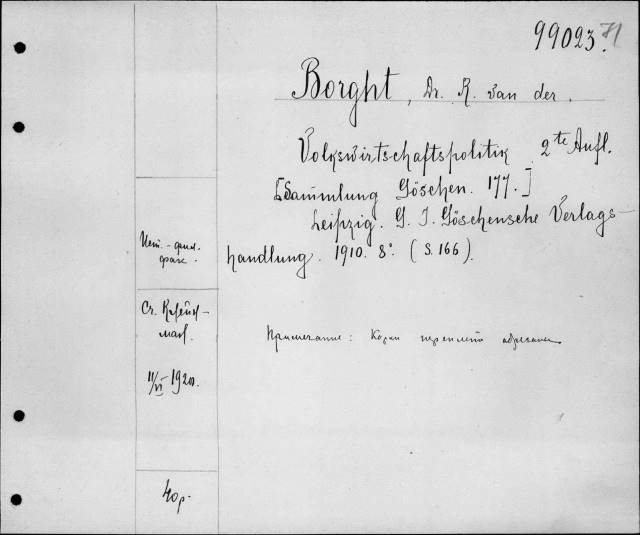 99023.
Borght, Dr. R. van der.
Volkswirtschaftspolitik 2te Aufl.
[Sammlung Göschen. 177.]
Leipzig. G. J. Göschensche Verlags-
handlung. 1910. 8°. (S. 166).
Ист.-фил.
фак.
Ст. Клейн-
ман.
11/VI 1920.
Примечание: Корки переплета обрезаны
40р.